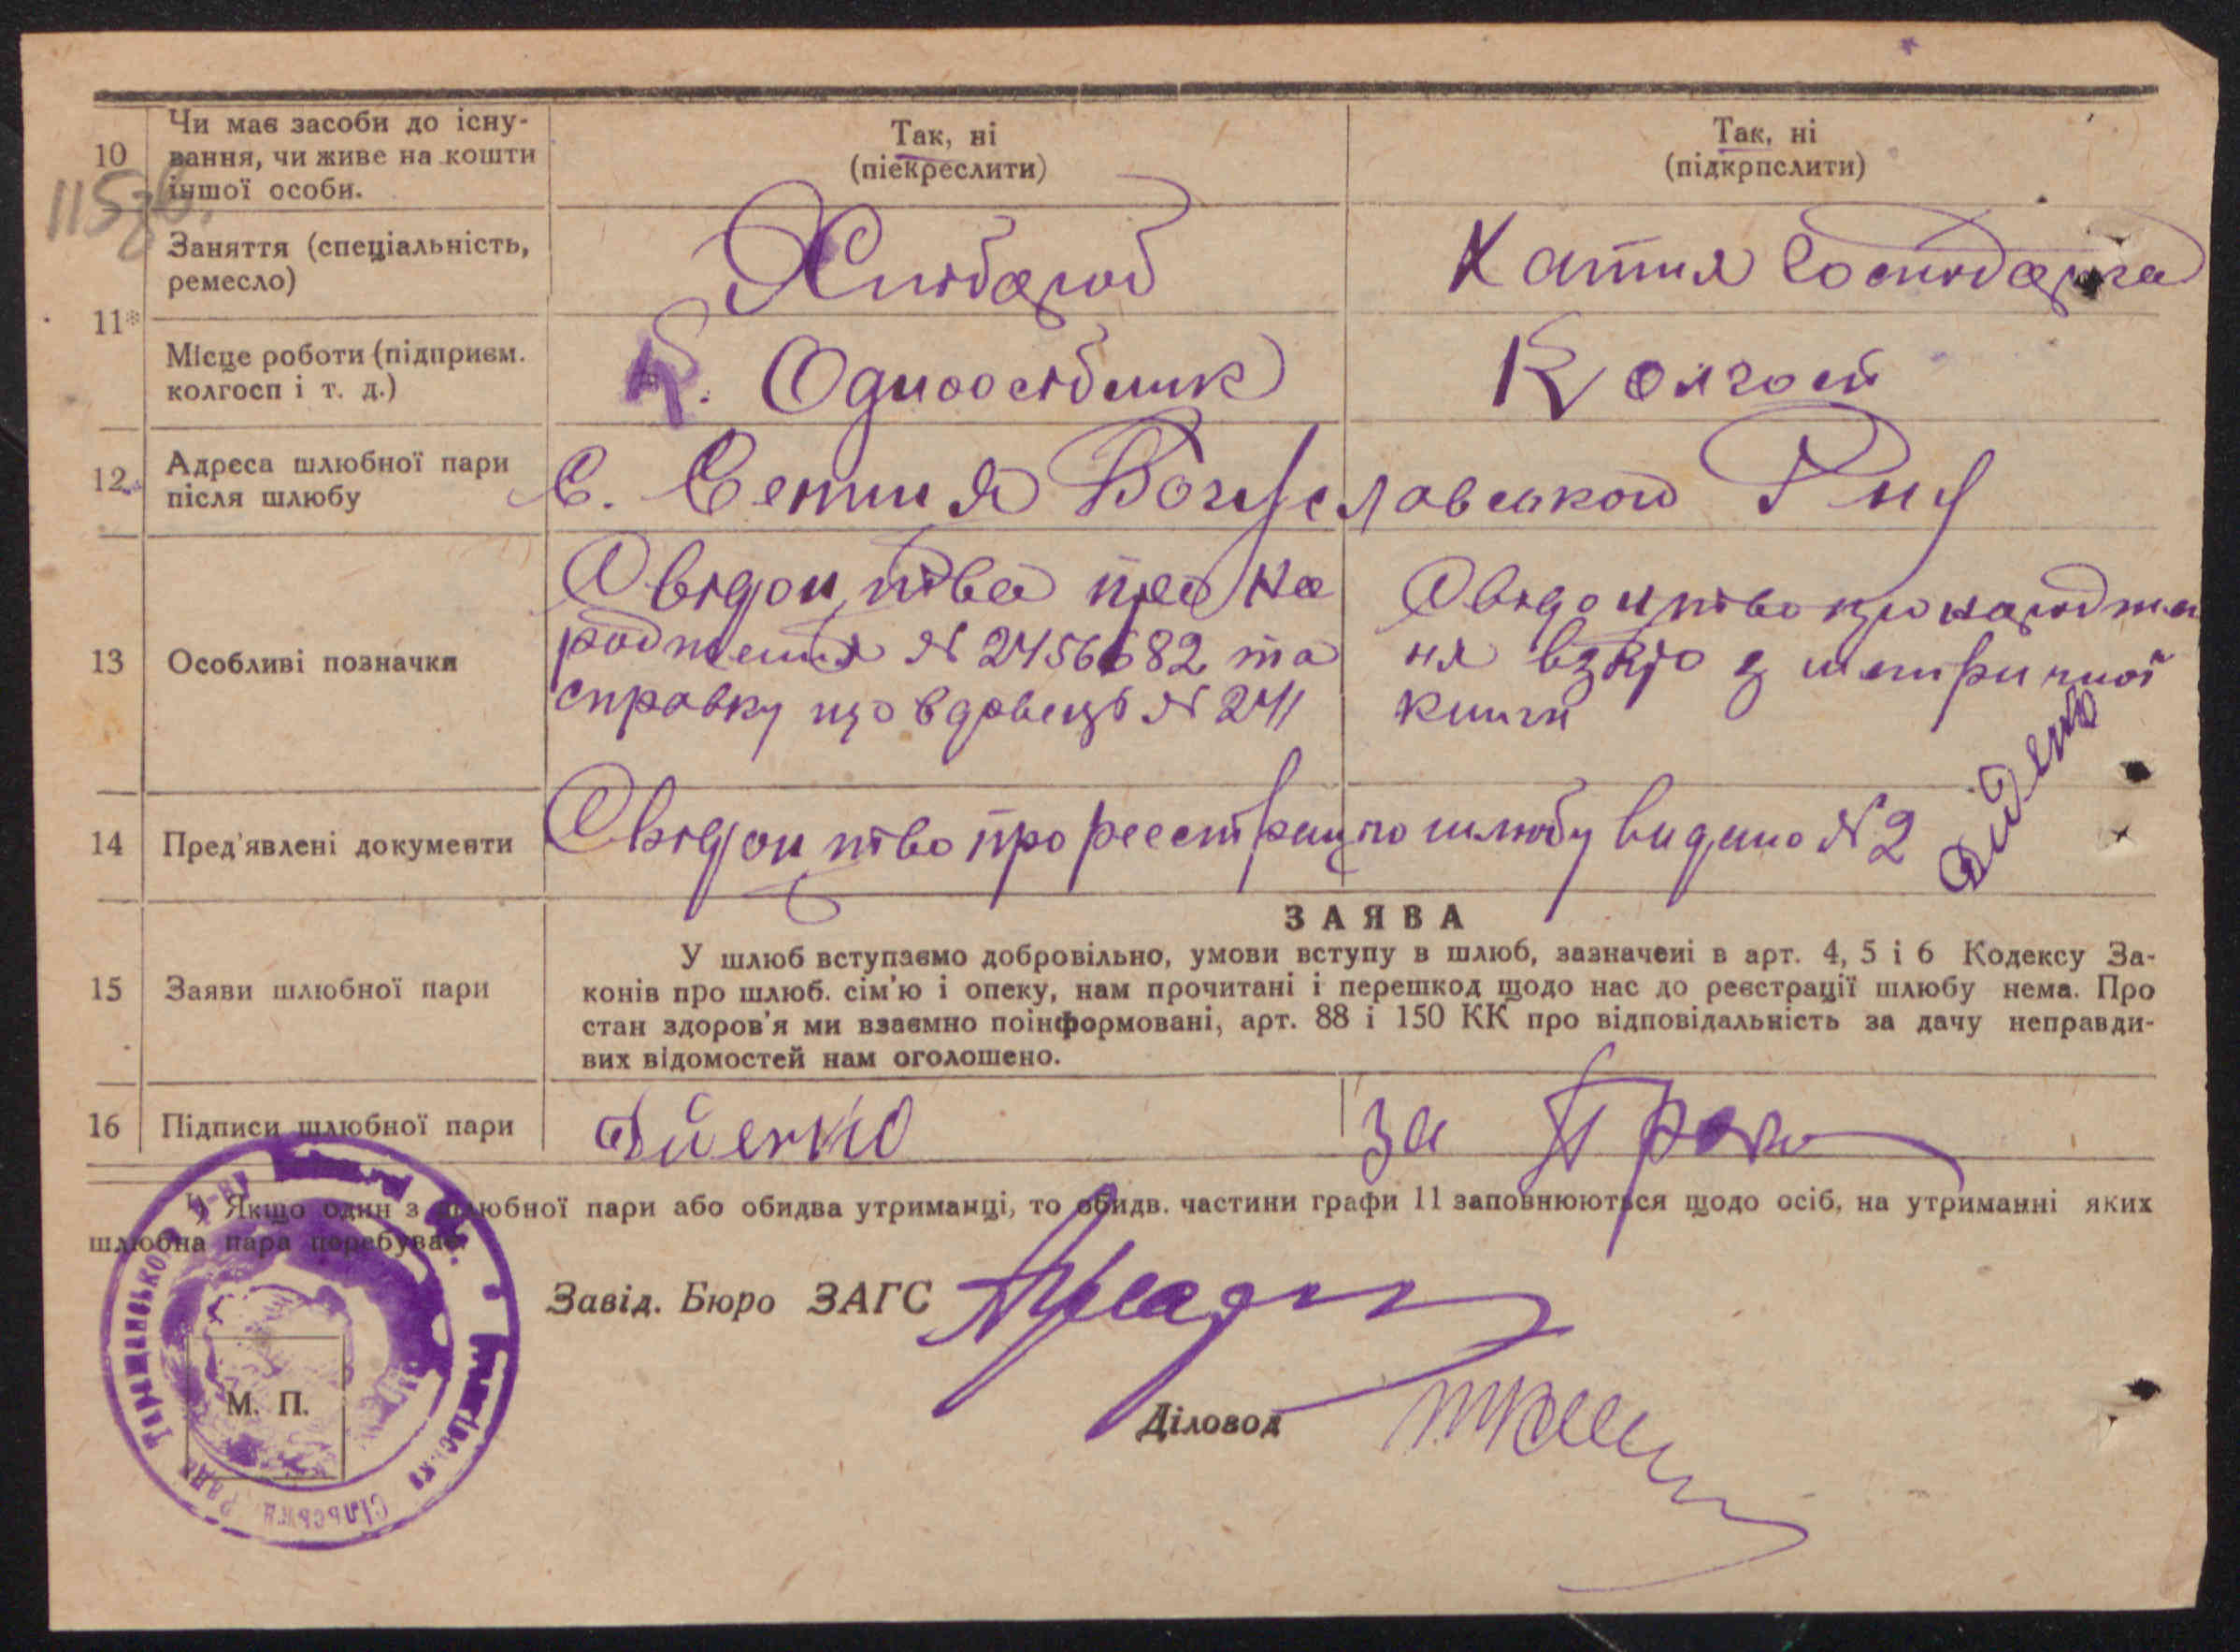 10 Чи має засоби до існу-
вання, чи живе на кошти
іншої особи.
Так, ні
(піекреслити)
Так, ні
(підкрпслити)
115зв.
11*
Заняття (спеціальність,
ремесло)
Хлібороб
Хатня Господарка
Місце роботи (підприєм.
колгосп і т. д.)
Одноосібник
Колгосп
12 Адреса шлюбної пари
після шлюбу
С. Богуславського Р-ну
13 Особливі позначки
Свідоцтва про На
родження № 2456682 та
справку що вдовець № 241
Свідоцтво про народже
ня взято з метричної
книги
14 Пред'явлені документи
Свідоцтво про реєстрацію шлюбу видано № 2
15 Заяви шлюбної пари
ЗАЯВА
У шлюб вступаємо добровільно, умови вступу в шлюб, зазначеиі в арт. 4, 5 і 6 Кодексу За-
конів про шлюб. сім'ю і опеку, нам прочитані і перешкод щодо нас до реєстрації шлюбу нема. Про
стан здоров'я ми взаємно поінформовані, арт. 88 і 150 КК про відповідальність за дачу неправди-
вих відомостей нам оголошено.
16 Підписи шлюбної пари
за
Якщо один з шлюбної пари або обидва утриманці, то обидв. частини графи 11 заповнюються щодо осіб, на утриманні яких
шлюбна пара перебуває.
Завід. Бюро ЗАГС
М. П.
Діловод
Таращанського Р-ну
Сільська Рада